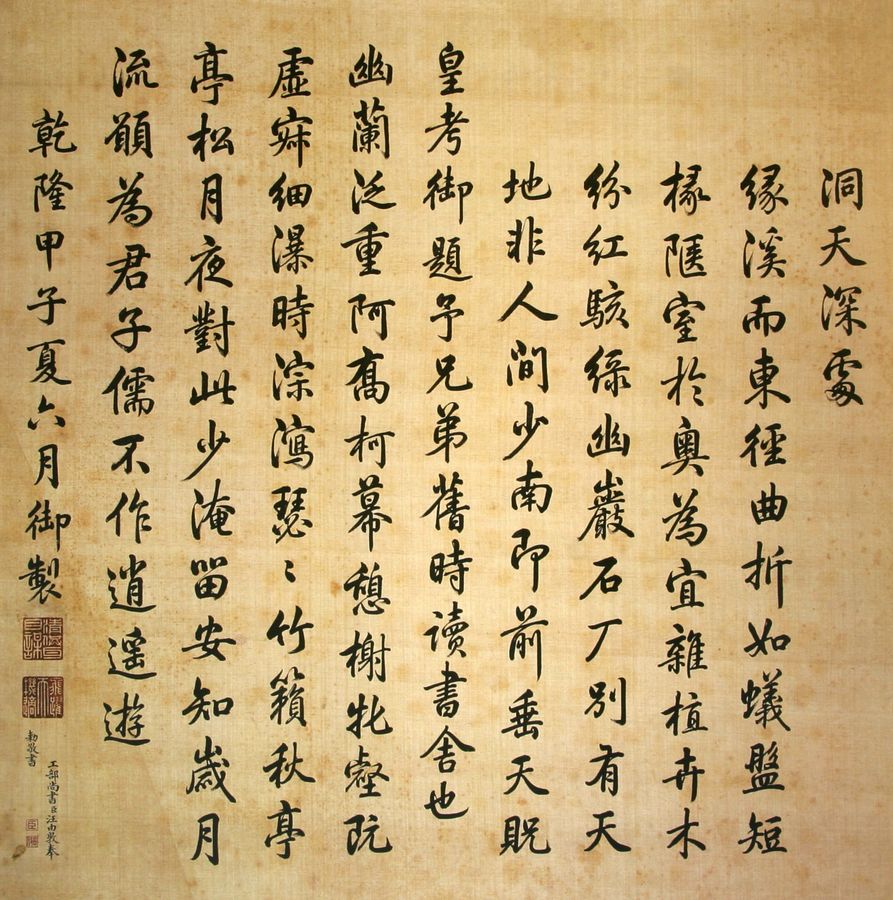 洞天深處
緣溪而東徑曲折如蟻盤短
椽陿室於奧為宜雜植卉木
紛紅駭綠幽巖石厂別有天
地非人間少南即前垂天貺
皇考御題予兄弟舊時讀書舍也
幽蘭泛重阿喬柯幕憩榭牝壑既
虛寂細瀑時淙瀉瑟〻竹籟秋亭
亭松月夜對此少淹留安知歲月
流願為君子儒不作逍遙遊
乾隆甲子夏六月御製
工部尚書臣汪由敦奉
勅敬書